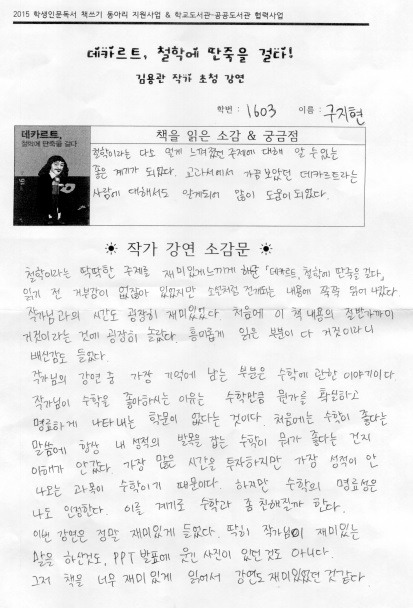 2015 학생인문독서 책쓰기 동아리 지원사업 & 학교도서관-공공도서관 협력사업
데카르트, 철학에 딴죽을 걸다!
김용관 작가 초청 강연
학번 : 1603 이름 : 구지현
데카르트,
철학에 딴죽을 걸다
책을 읽은 소감 & 궁금점
철학이라는 다소 멀게 느껴졌던 주제에 대해 알 수 있는
좋은 계기가 되었다. 교과서에서 가끔 보았던 데카르트라는
사람에 대해서도 알게되어 많이 도움이 되었다.
작가 강연 소감문
철학이라는 딱딱한 주제를 재미있게 느끼게 하단 「데카르트, 철학에 딴죽을 걸다」
읽기 전 거부감이 없잖아 있었지만 소설처럼 전개되는 내용에 쭉쭉 읽어 나갔다.
작가님과의 시간도 굉장히 재미있었다. 처음에 이 책 내용의 절반가까이
거짓이라는 것에 굉장히 놀랐다. 흥미롭게 읽은 부분이 다 거짓이라니
배신감도 들었다.
작가님의 강연 중 가장 기억에 남는 부분은 수학에 관한 이야기이다
작가님이 수학을 좋아하시는 이유는 수학만큼 뭔가를 확실하고
명료하게 나타내는 학문이 없다는 것이다. 처음에는 수학이 좋다는
말씀에 항상 내 성적의 발목을 잡는 수학이 뭐가 좋다는 건지
이해가 안 갔다. 가장 많은 시간을 투자하지만 가장 성적이 안
나오는 과목이 수학이기 때문이다. 하지만 수학의 명료성은
나도 인정한다. 이를 계기로 수학과 좀 친해질까 한다.
이번 강연은 정말 재미있게 들었다. 딱히 작가님이 재미있는
말을 하신것도, PPT 발표에 웃긴 사진이 있던 것도 아니다.
그저 책을 너무 재미있게 읽어서 강연도 재미있었던 것 같다.